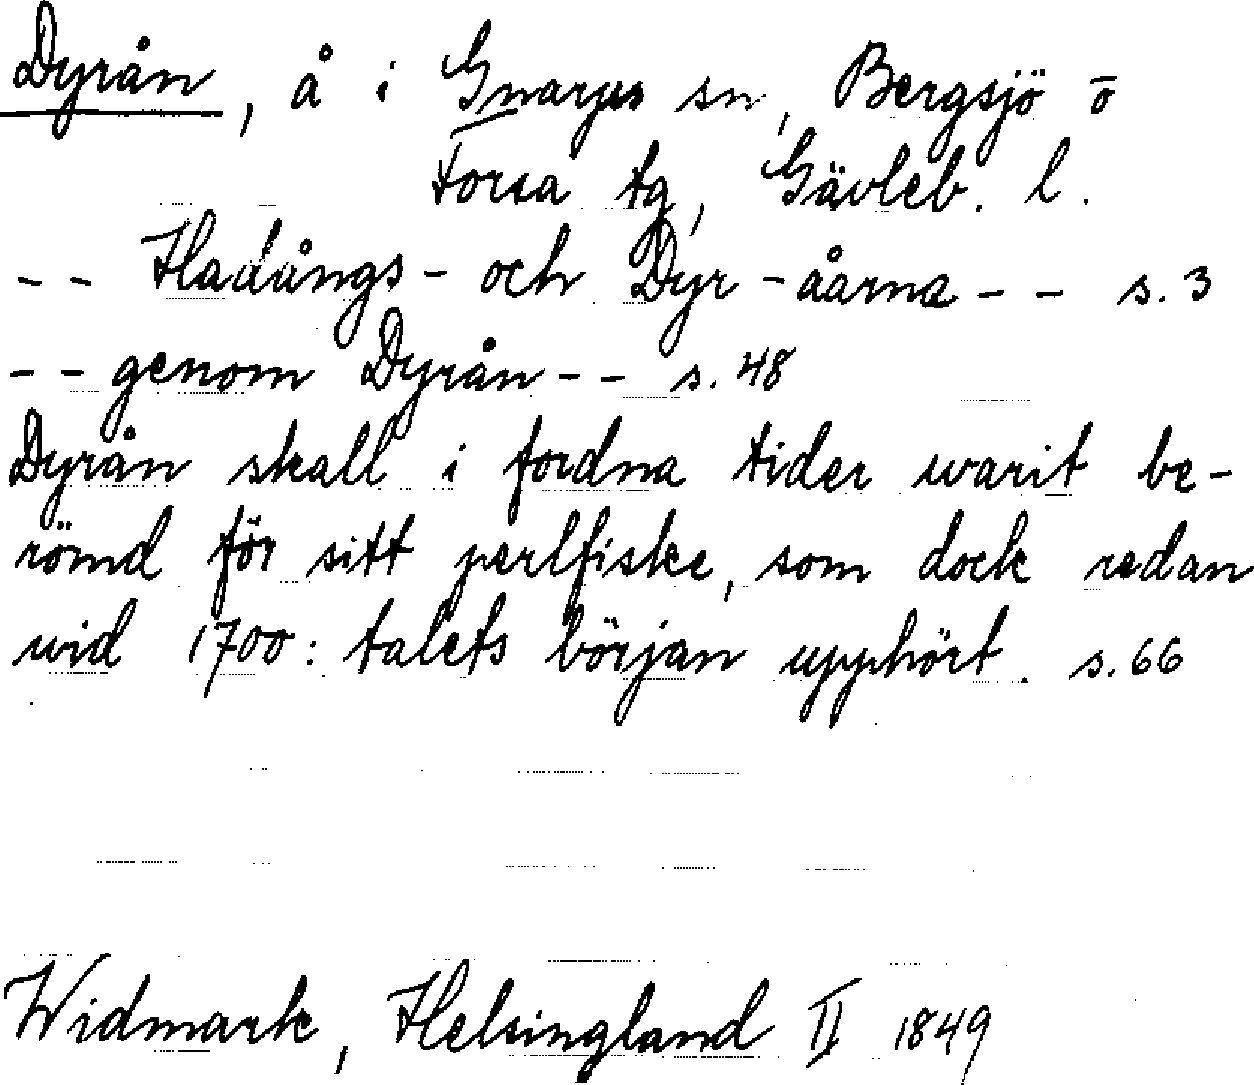 Dyrån, å i Gnarps sn, Bergsjö o
Forsa tg, Gävleb. l.
-- Hadångs- och Dyr-åarna -- s. 3
-- genom Dyrån -- s. 48
Dyrån skall i fordna tider warit be-
römd för sitt perlfiske, som dock redan
wid 1700:talets början upphört. s. 66
Widmark, Helsingland II 1849